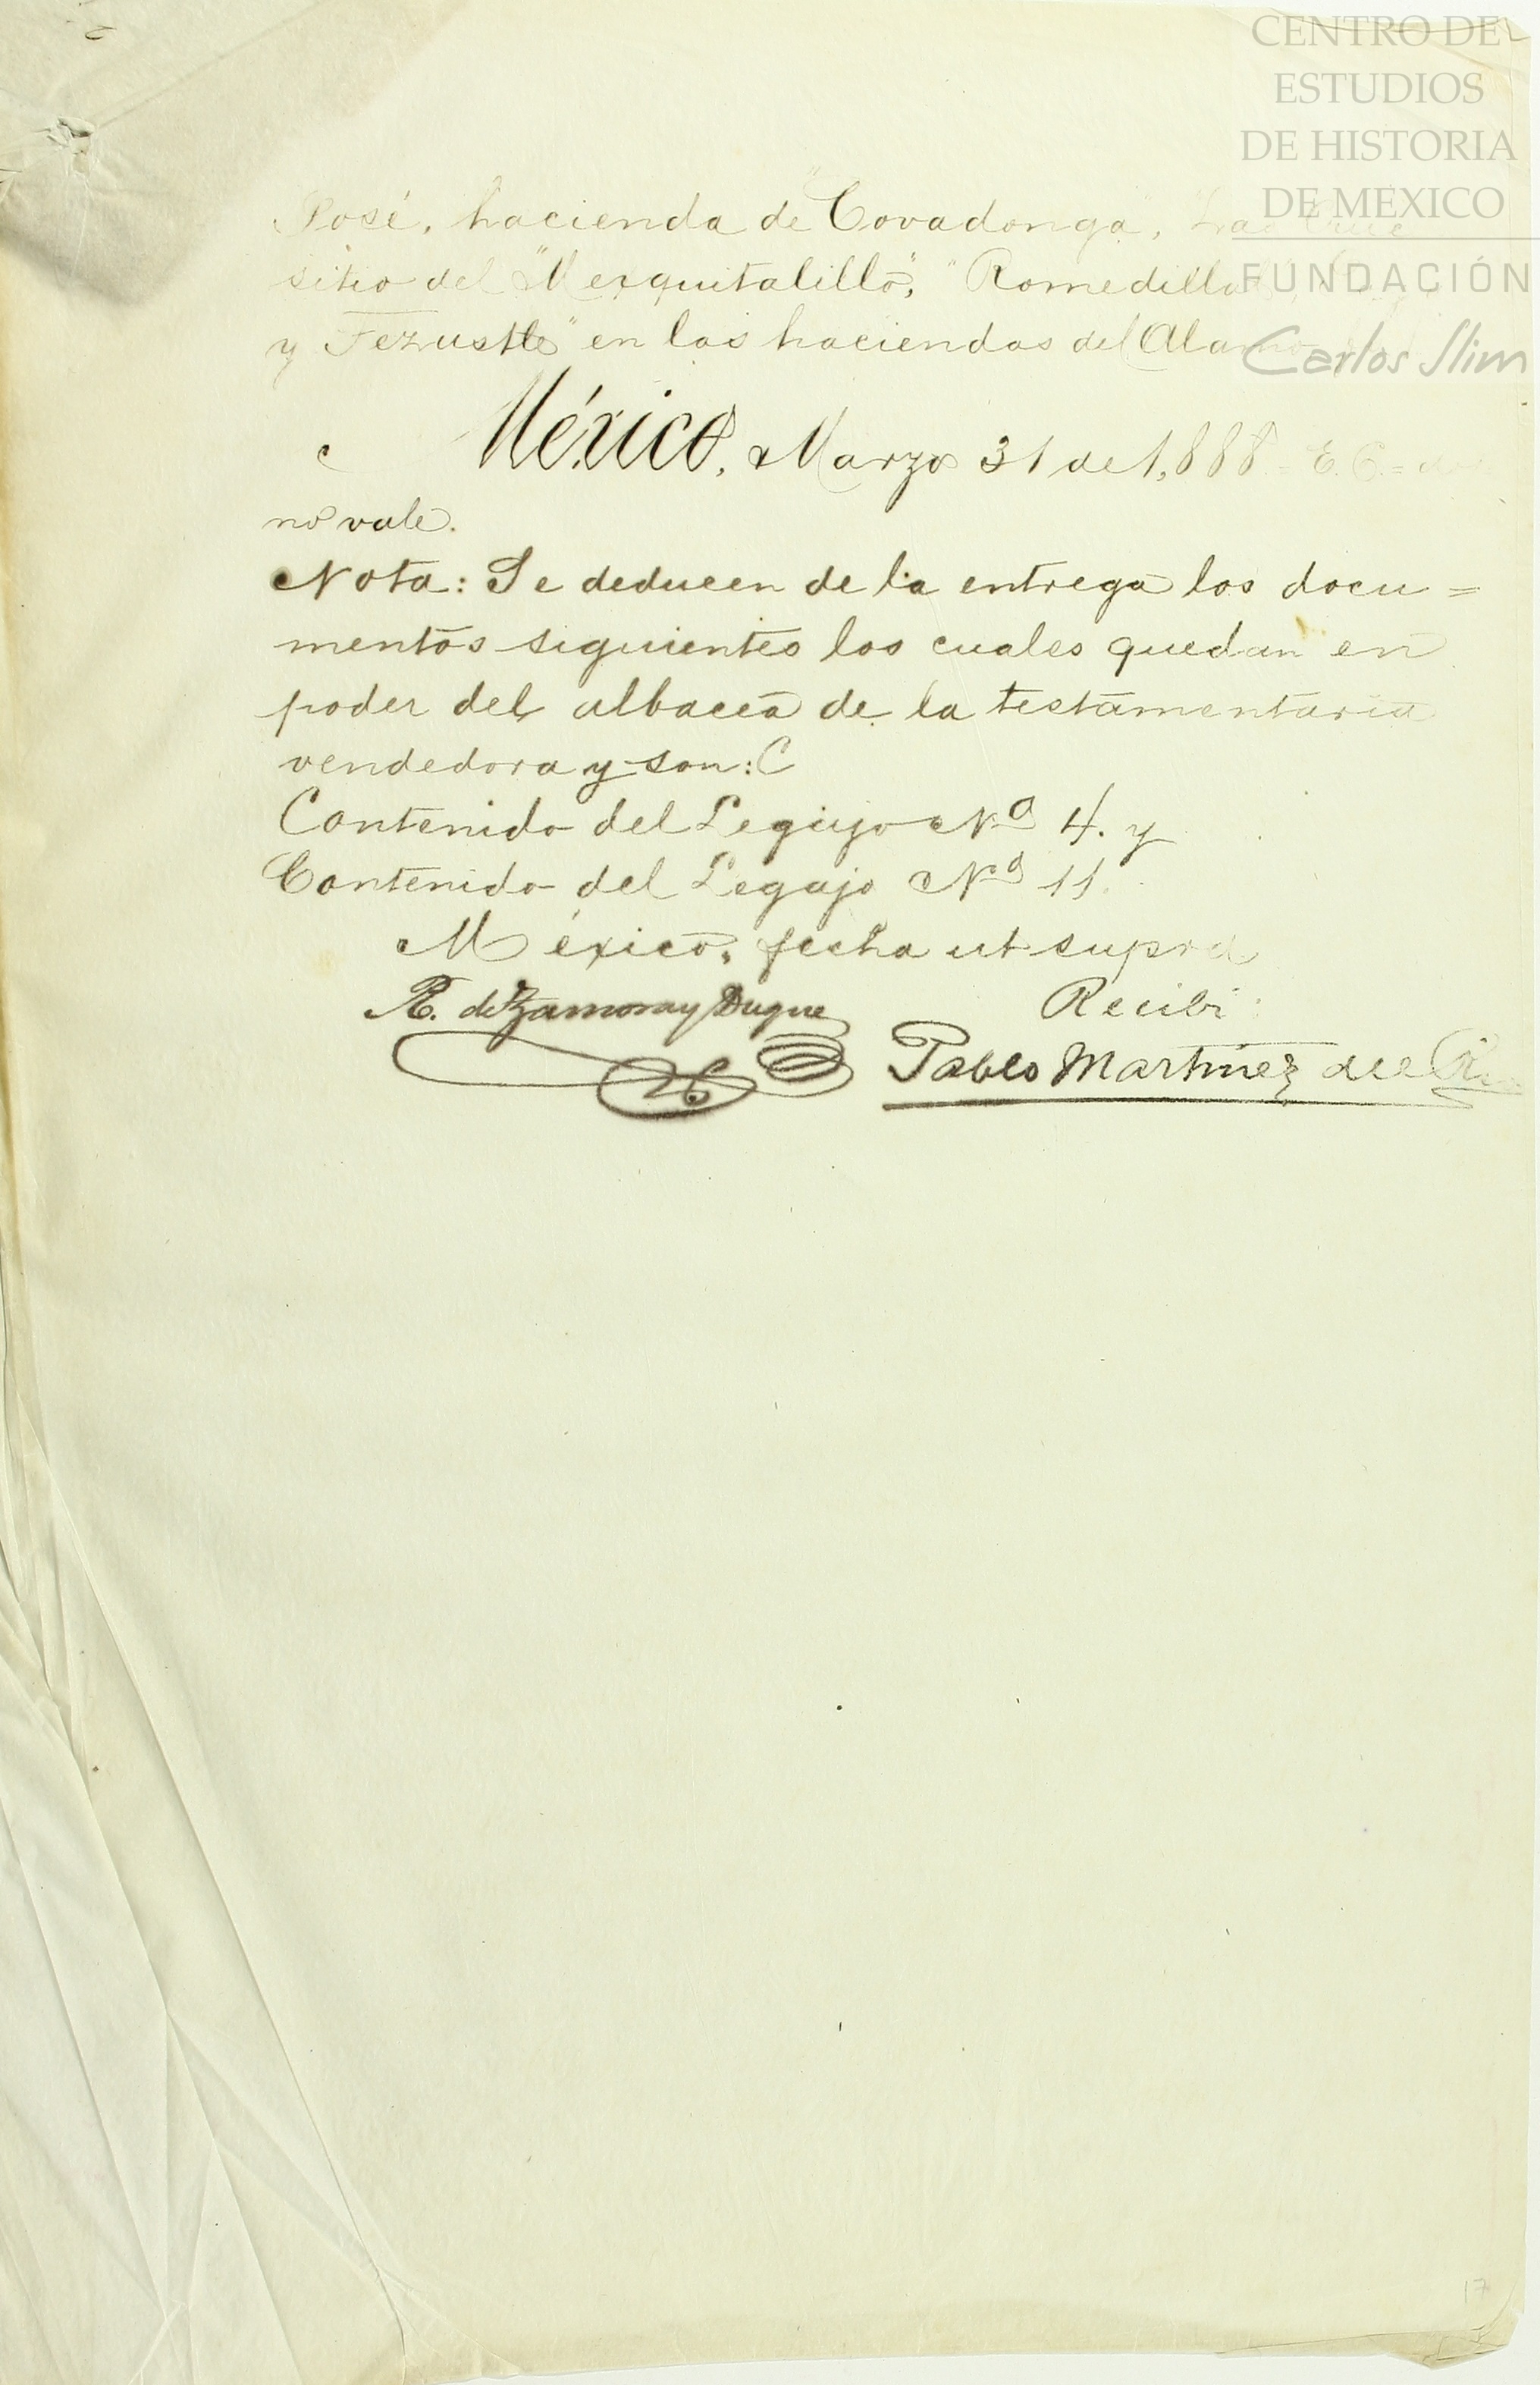 CENTRO DE
ESTUDIOS
DE HISTORIA
DE MÉXICO
FUNDACIÓN
Carlos Slim
José, hacienda de "Covadonga",
sitio del "Mezquitalillo", "Romedillo
y Tezustle" en las haciendas del Alamo
México, Marzo 31 de 1,888. = E. C. =
no vale.
Nota: Se deducen de la entrega los docu=
mentos siguientes los cuales quedan en
poder del albacea de la testamentaria
vendedora y son:
Contenido del Legajo Nº 4. y
Contenido del Legajo Nº 11.
México, fecha ut supra
R. de Zamora y Duque
Recibí:
Pablo Martínez del Río
17